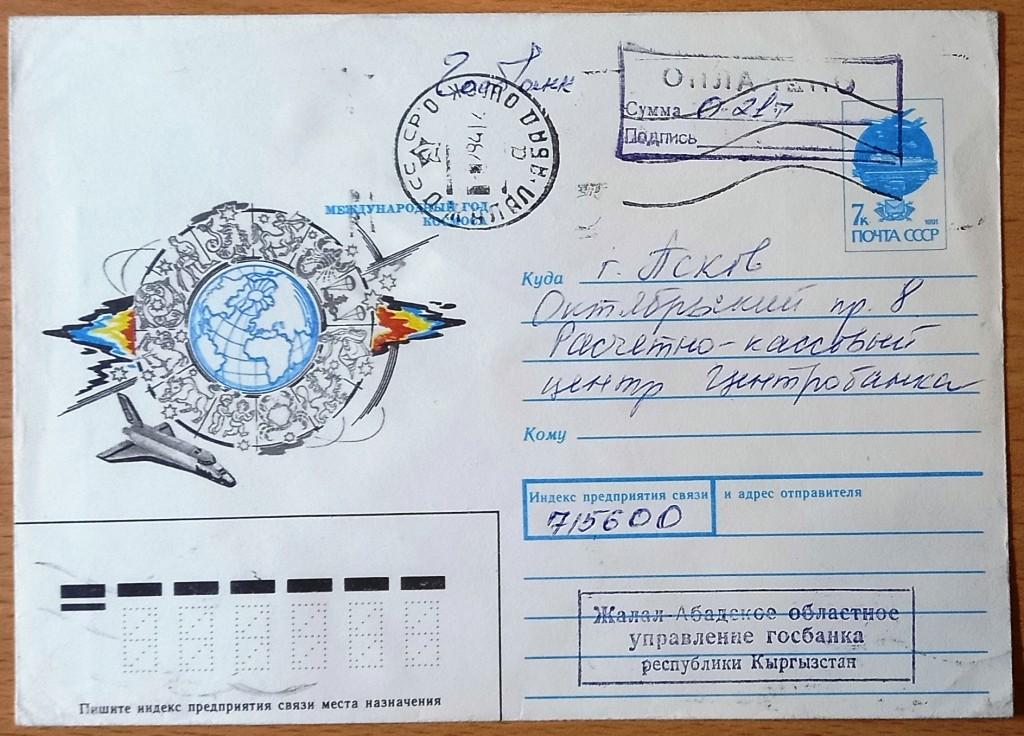 Госбанк
ОПЛАЧЕНО
Сумма 0-21т
Подпись
СССР
МЕЖДУНАРОДНЫЙ ГОД
КОСМОСА
7к 1991
ПОЧТА СССР
Куда г. Псков
Октябрьский пр. 8
Расчётно-кассовый
центр Центробанка
Кому
Индекс предприятия связи и адрес отправителя
715600
Жалал-Абадское областное
управление госбанка
республики Кыргызстан
Пишите индекс предприятия связи места назначения